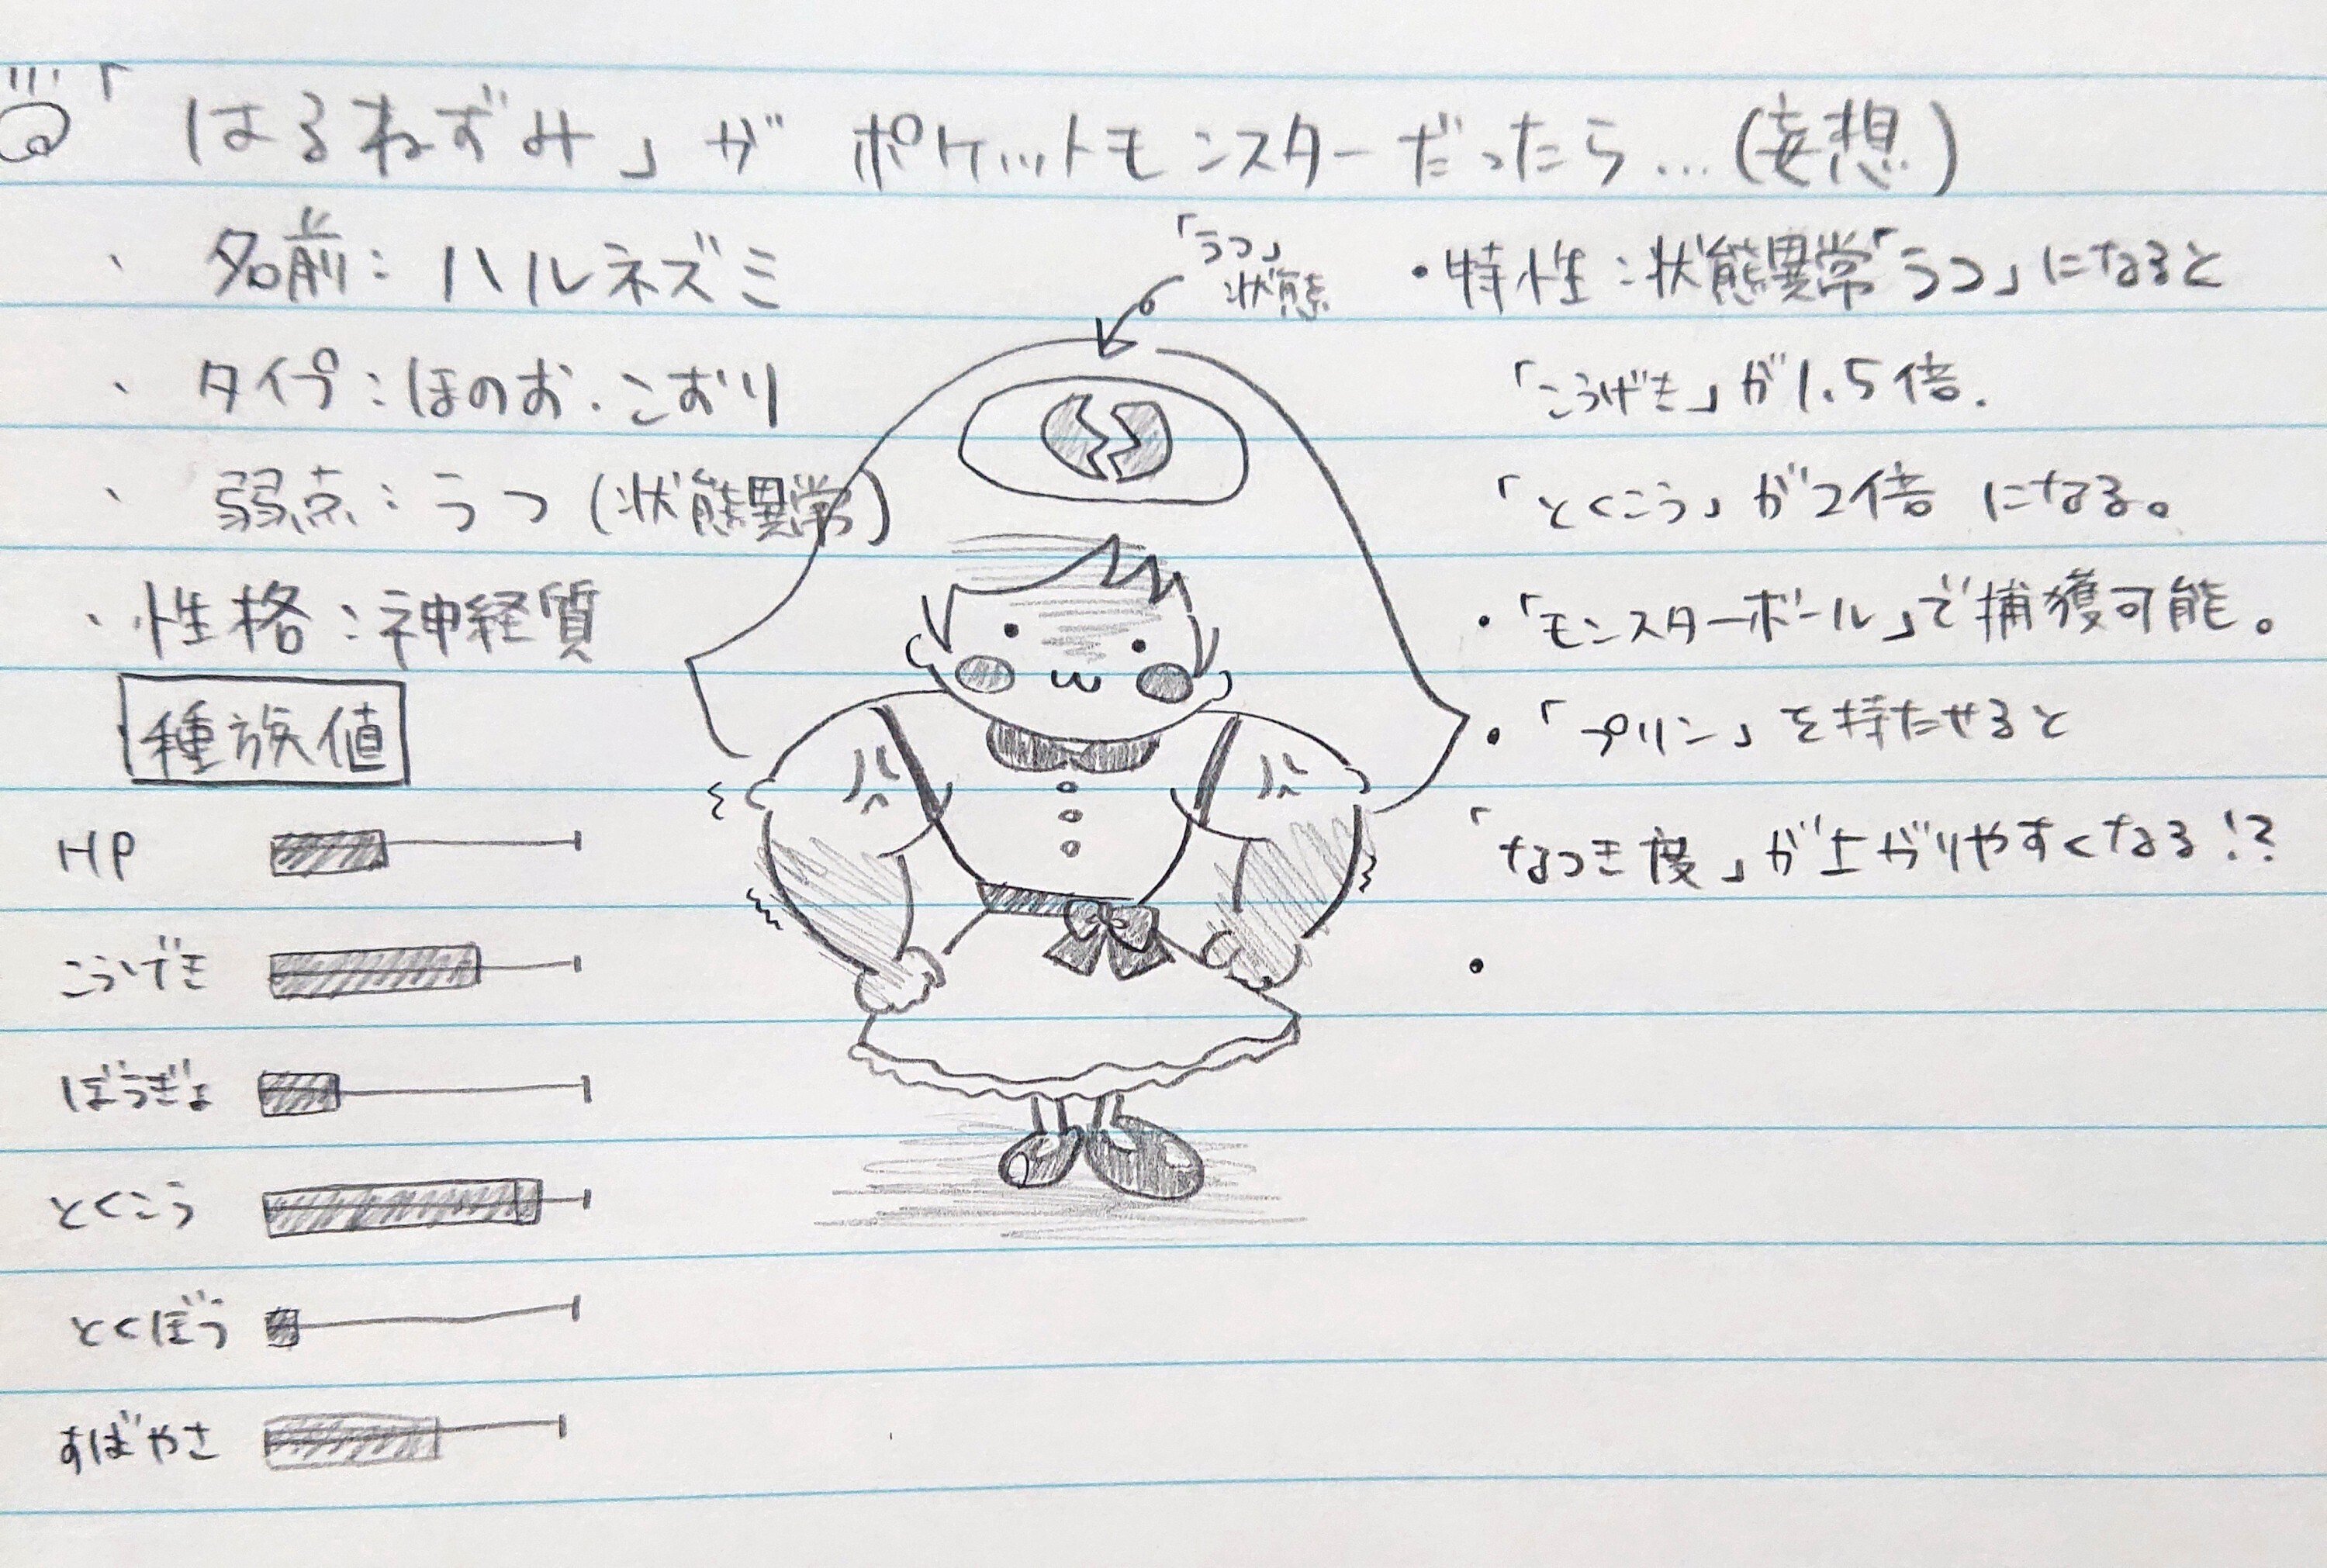 「はるねずみ」が ポケットモンスターだったら…(妄想)
、 名前：ハルネズミ
、 タイプ：ほのお・こおり
、 弱点：うつ (状態異常)
・性格：神経質
種族値
HP
こうげき
ぼうぎょ
とくこう
とくぼう
すばやさ
「うつ」
状態
・特性：状態異常「うつ」になると
「こうげき」が1.5倍.
「とくこう」が2倍 になる。
・「モンスターボール」で捕獲可能。
・「プリン」を持たせると
「なつき度」が上がりやすくなる!?
・